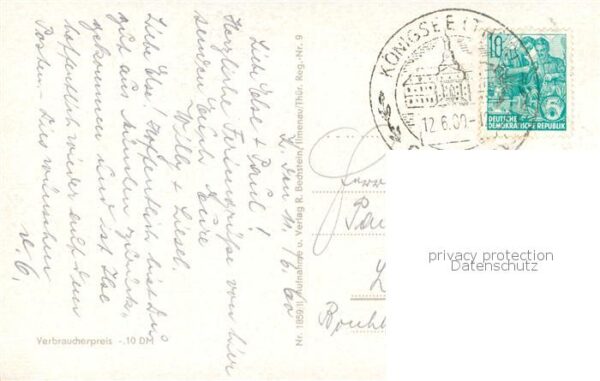 Z. Den 11./6. 60
Liebe Else + Paul!
Herzliche Feriengrüße von hier
senden Euch Eure
Willy + Liesel.
Liebe Else! Hoffentlich bist Du
gut aus München zurück-
gekommen und ist Else
hoffentlich wieder auf dem
Posten. Dies wünschen
Nr. 1859/II Aufnahme u. Verlag R. Bechstein/Ilmenau/Thür. Reg.-Nr. 9
Verbraucherpreis -.10 DM
KÖNIGSEE (TH
12.6.60-
10
5
DEUTSCHE
DEMOKRATISCHE REPUBLIK
Herr
Pau
privacy protection
Datenschutz